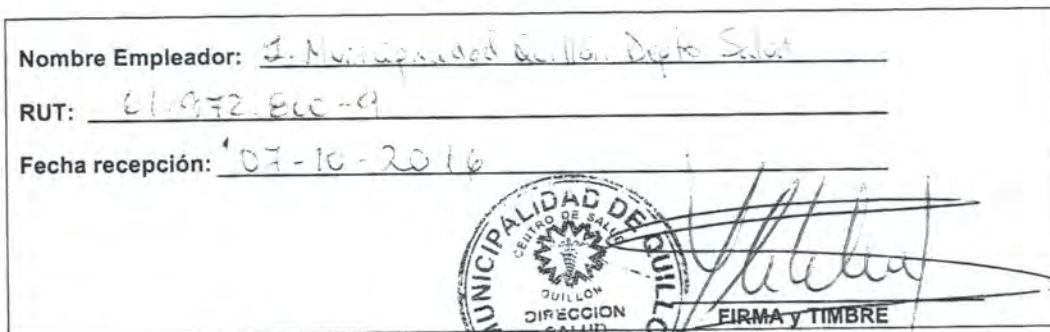 Nombre Empleador: I. Municipalidad Quillón Depto Salud
RUT: 61.972.800-9
Fecha recepción: 07-10-2016
MUNICIPALIDAD DE QUILLO
CENTRO DE SALUD
QUILLON
DIRECCION
SALUD
FIRMA y TIMBRE